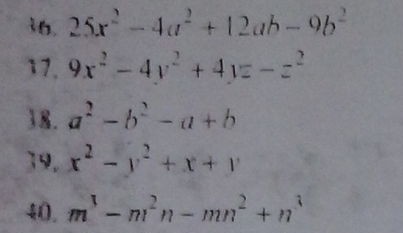 36. 25x² − 4a² + 12ab − 9b²
37. 9x² − 4y² + 4yz − z²
38. a² − b² − a + b
39. x² − y² + x + y
40. m³ − m²n − mn² + n³